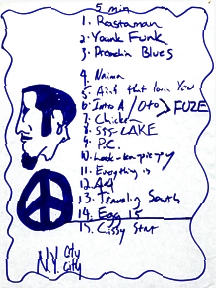 5 min
1. Rastaman
2. Yank Funk
3. Preachin Blues
4. Naima
5. Ain't that lovin You
6. Into A / Oto > FUZE
7. Chicken
8. sss-LAKE
9. P.C.
10.
11. Everything is
12. A4
13. Traveling South
14. Egg 15
15. Cissy Strut
N.Y. City
City